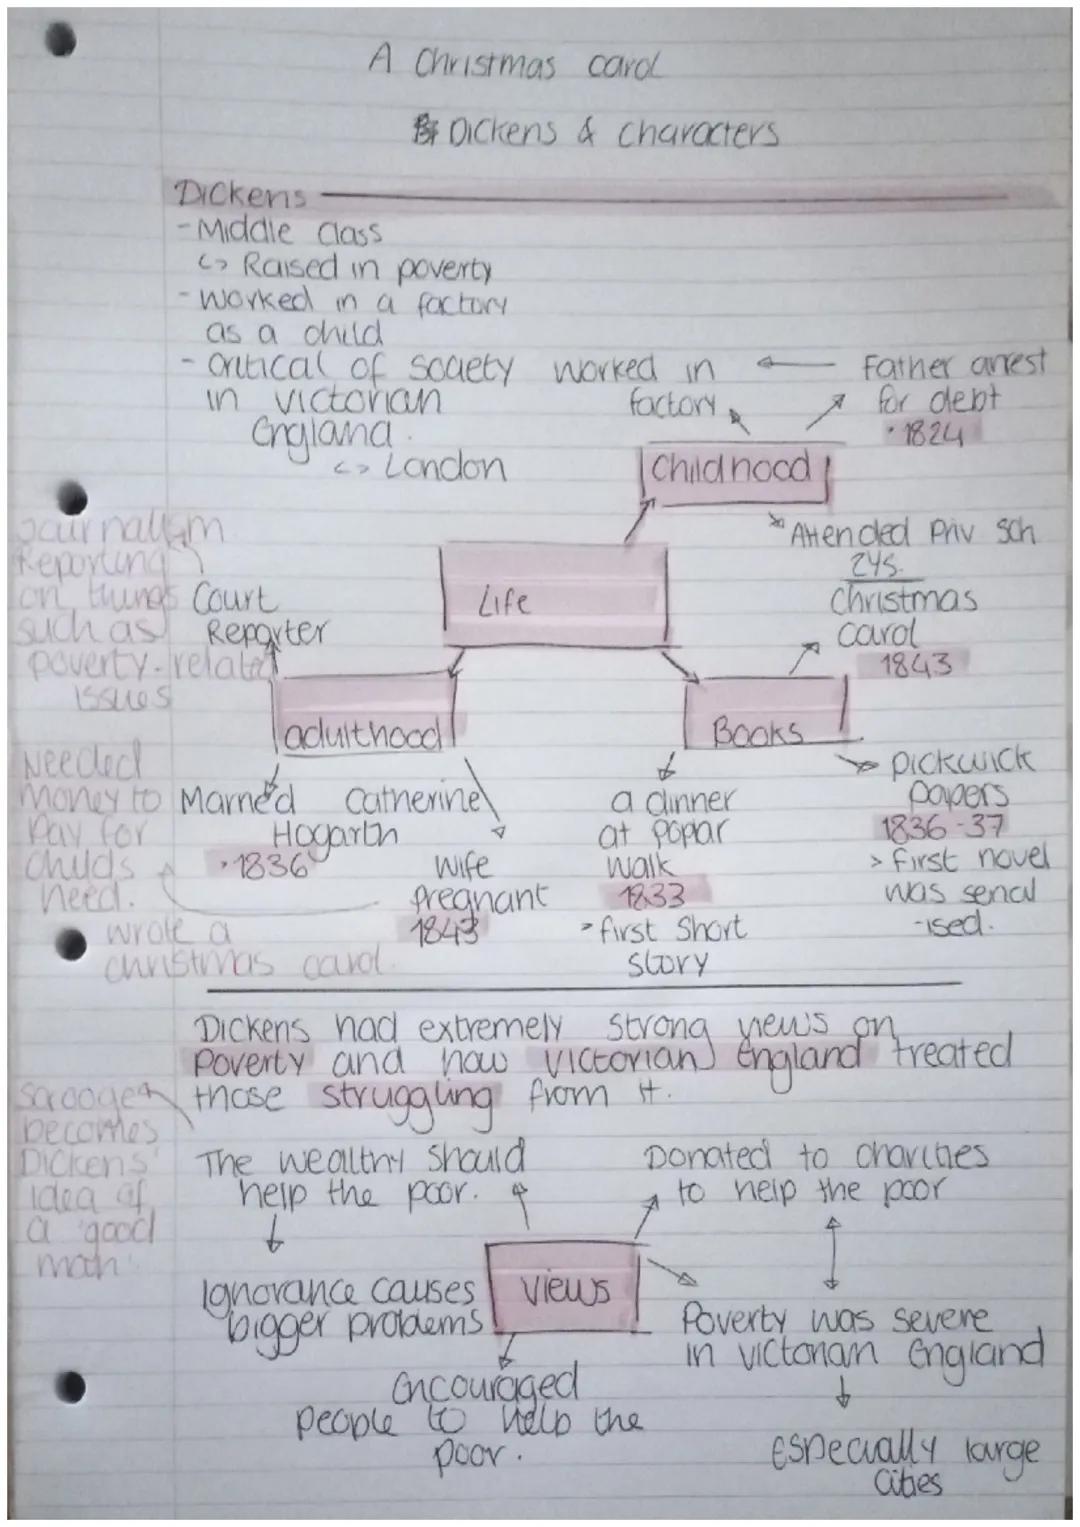 A Christmas carol
Dickens & characters
Dickens
- Middle class
↳ Raised in poverty
- Worked in a factory
as a child
- critical of society
in victorian
England.
↳ London
Worked in
factory
Father arrest
for debt
• 1824
Childhood
Attended Priv Sch
2ys.
Life
Journalism
Reporting
on things
such as
poverty-related
issues
Court
Reporter
Christmas
carol
1843
adulthood
Books
Needed
money to
pay for
childs
need.
Married Catherine
Hogarth
• 1836
wife
pregnant
1843
wrote a
christmas carol.
a dinner
at popar
walk
1833
> first short
story
pickwick
papers
1836-37
> first novel
was serial
-ised.
Dickens had extremely strong views on
poverty and how victorian England treated
those struggling from it.
Scrooge
becomes
Dickens'
idea of
a 'good
man'
The wealthy should
help the poor.
Donated to charities
to help the poor
Ignorance causes
bigger problems
views
Poverty was severe
in victorian England
Encouraged
people to help the
poor.
especially large
cities